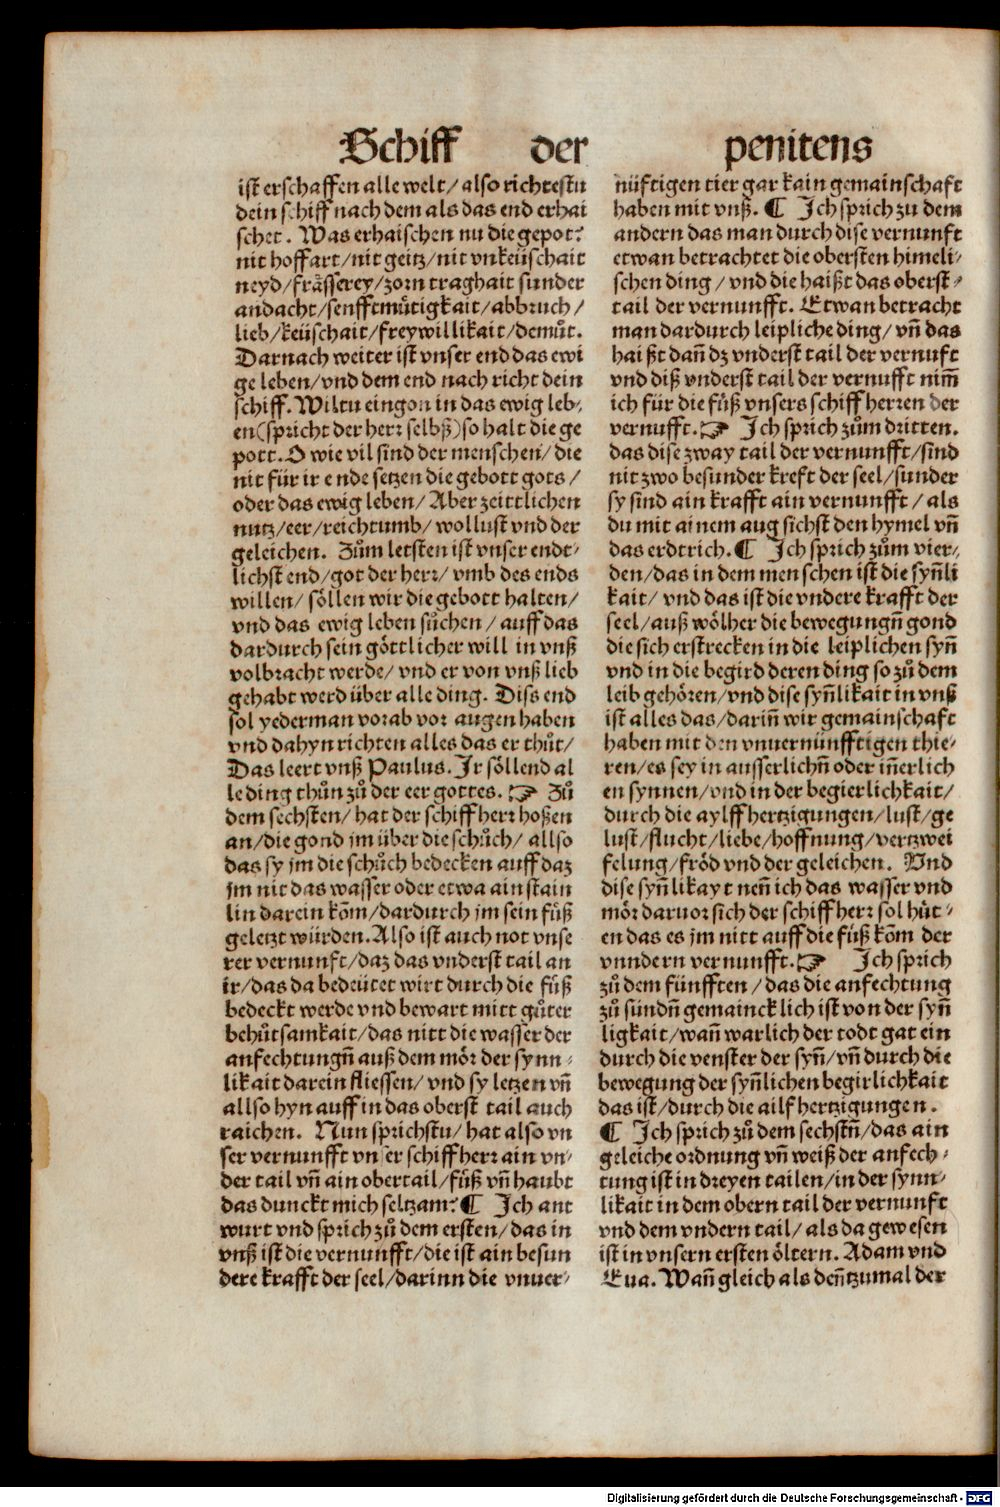 Schiff der penitens
ist erschaffen alle welt/ also richtestu
dein schiff nach dem als das end erhai
schet. Was erhaischen nu die gepot?
nit hoffart/ nit geitz/ nit vnkeüschait
neyd/ frässerey/ zorn traghait sunder
andacht/ senfftmůtigkait/ abbruch/
lieb/ keüschait/ freywillikait/ demůt.
Darnach weiter ist vnser end das ewi
ge leben/ vnd dem end nach richt dein
schiff. Wiltu eingon in das ewig leb⸗
en (spricht der herr selbß) so halt die ge
pott. O wie vil sind der menschen/ die
nit für ir ende setzen die gebott gots/
oder das ewig leben/ Aber zeittlichen
nutz/ eer/ reichtumb/ wollust vnd der
geleichen. Zům letsten ist vnser endt⸗
lichst end/ got der herr/ vmb des ends
willen/ söllen wir die gebott halten/
vnd das ewig leben sůchen/ auff das
dardurch sein göttlicher will in vnß
volbracht werde/ vnd er von vnß lieb
gehabt werd über alle ding. Diss end
sol yederman vorab vor augen haben
vnd dahyn richten alles das er thůt/
Das leert vnß Paulus. Ir söllend al
le ding thůn zů der eer gottes. ☞ Zů
dem sechsten/ hat der schiffherr hoßen
an/ die gond jm über die schůch/ allso
das sy jm die schůch bedecken auff daz
jm nit das wasser oder etwa ain stain
lin darein kom̄/ dardurch jm sein fůß
geletzt würden. Also ist auch not vnse
rer vernunft/ daz das vnderst tail an
ir/ das da bedeütet wirt durch die fůß
bedeckt werde vnd bewart mitt gůter
behůtsamkait/ das nitt die wasser der
anfechtungn̄ auß dem mör der synn⸗
likait darein fliessen/ vnd sy letzen vn̄
allso hyn auff in das oberst tail auch
raichen. Nun sprichstu/ hat also vn
ser vernunfft vnser schiffherr ain vn⸗
der tail vn̄ ain obertail/ fůß vn̄ haubt
das dunckt mich seltzam? ¶ Ich ant
wurt vnd sprich zů dem ersten/ das in
vnß ist die vernunfft/ die ist ain besun
dere krafft der seel/ darinn die vnuer⸗
nüftigen tier gar kain gemainschaft
haben mit vnß. ¶ Ich sprich zu dem
andern das man durch dise vernunft
etwan betrachtet die obersten himeli⸗
schen ding/ vnd die haißt das oberst⸗
tail der vernunfft. Etwan betracht
man dardurch leipliche ding/ vn̄ das
haißt dan̄ dz vnderst tail der vernuft
vnd diß vnderst tail der vernufft nim̄
ich für die fůß vnsers schiffherren der
vernufft. ☞ Ich sprich zům dritten.
das dise zway tail der vernunfft/ sind
nit zwo besunder kreft der seel/ sunder
sy sind ain krafft ain vernunfft/ als
du mit ainem aug sichst den hymel vn̄
das erdtrich. ¶ Ich sprich zům vier⸗
den/ das in dem menschen ist die syn̄li
kait/ vnd das ist die vndere krafft der
seel/ auß wölher die bewegungn̄ gond
die sich erstrecken in die leiplichen syn̄
vnd in die begird deren ding so zů dem
leib gehören/ vnd dise syn̄likait in vnß
ist alles das/ darin̄ wir gemainschaft
haben mit den vnuernünfftigen thie⸗
ren/ es sey in ausserlichn̄ oder in̄erlich
en synnen/ vnd in der begierlichkait/
durch die aylff hertzigungen/ lust/ ge
lust/ flucht/ liebe/ hoffnung/ vertzwei
felung/ fröd vnd der geleichen. Vnd
dise syn̄likayt nen̄ ich das wasser vnd
mör daruor sich der schiffherr sol hůt⸗
en das es jm nitt auff die fůß kom̄ der
vnndern vernunfft. ☞ Ich sprich
zů dem fünfften/ das die anfechtung
zů sündn̄ gemaincklich ist von der syn̄
ligkait/ wan̄ warlich der todt gat ein
durch die venster der syn̄/ vn̄ durch die
bewegung der syn̄lichen begirlichkait
das ist/ durch die ailf hertzigungen.
¶ Ich sprich zů dem sechstn̄/ das ain
geleiche ordnung vn̄ weiß der anfech⸗
tung ist in dreyen tailen/ in der synn⸗
likait in dem obern tail der vernunft
vnd dem vndern tail/ als da gewesen
ist in vnsern ersten öltern. Adam vnd
Eua. Wan̄ gleich als den̄tzumal der
Digitalisierung gefördert durch die Deutsche Forschungsgemeinschaft - DFG